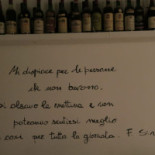 Mi dispiace per le persone
che non bevono.
si alzano la mattina e non
potranno sentirsi meglio
di così per tutta la giornata. F.